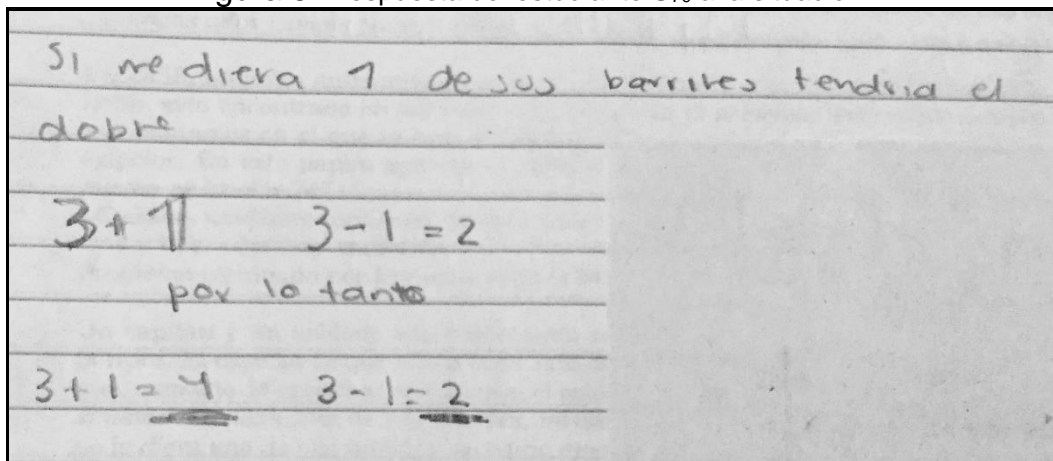 Si me diera 1 de sus barriles tendria el
doble
3+1 3-1=2
por lo tanto
3+1=4 3-1=2